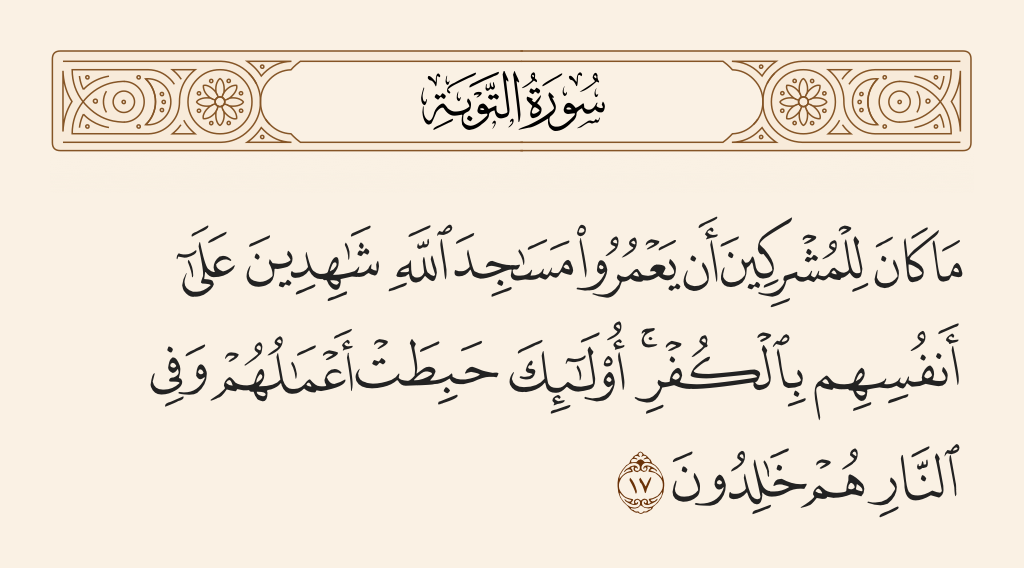 سُورَةُ التَّوْبَةِ
مَا كَانَ لِلْمُشْرِكِينَ أَن يَعْمُرُوا۟ مَسَـٰجِدَ ٱللَّهِ شَـٰهِدِينَ عَلَىٰٓ
أَنفُسِهِم بِٱلْكُفْرِ ۚ أُو۟لَـٰٓئِكَ حَبِطَتْ أَعْمَـٰلُهُمْ وَفِى
ٱلنَّارِ هُمْ خَـٰلِدُونَ ١٧